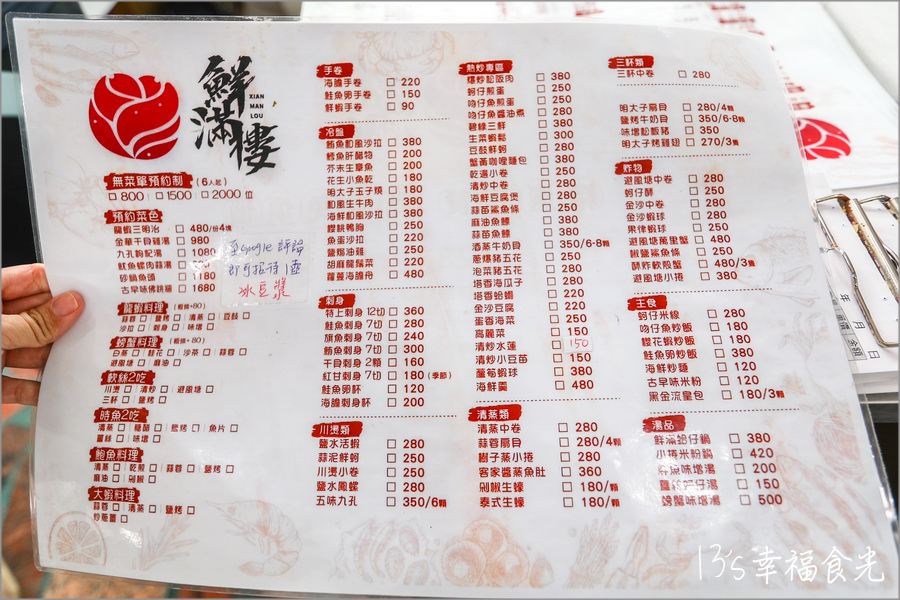 鮮滿樓
XIAN
MAN
LOU
無菜單預約制 (6人起)
□800 □1500 □2000 位
預約菜色
龍蝦三明治 □ 480/份4塊
金華干貝雞湯 □ 980
九孔枸杞湯 □ 1080
魷魚螺肉蒜湯
砂鍋魚頭 □ 1180
古早味佛跳牆 □ 1680
至Google評論
即可招待1壺
冰豆漿
龍蝦料理 (粄條+80)
蒜蓉 □ 鹽烤 □ 清蒸 □ 豆豉 □
沙拉 □ 刺身 □ 味增 □
螃蟹料理 (粄條+80)
白蒸 □ 桂花 □ 沙茶 □ 蒜蓉 □
避風塘 □ 麻油 □
軟絲2吃
川燙 □ 清炒 □ 避風塘 □
三杯 □ 鹽烤 □
時魚2吃
清蒸 □ 糖醋 □ 鹽烤 □ 魚片 □
薑絲 □ 味增 □
鮑魚料理
清蒸 □ 乾煎 □ 蒜蓉 □ 鹽烤 □
麻油 □ 剁椒 □
大蝦料理
蒜蓉 □ 清蒸 □ 鹽烤 □
炒飯麵 □
手卷
海膽手卷 □ 220
鮭魚卵手卷 □ 150
鮮蝦手卷 □ 90
冷盤
鮪魚和風沙拉 □ 380
鱈魚肝醋物 □ 200
芥末生章魚 □ 200
花生小魚乾 □ 180
明太子玉子燒 □ 180
和風生牛肉 □ 380
海鮮和風沙拉 □ 380
櫻桃鴨胸 □ 250
魚蛋沙拉 □ 220
鹽焗油雞 □ 250
胡麻龍鬚菜 □ 220
蘿蔓海膽舟 □ 480
刺身
特上刺身 12切 □ 360
鮭魚刺身 7切 □ 280
旗魚刺身 7切 □ 240
鮪魚刺身 7切 □ 300
干貝刺身 2顆 □ 160
紅甘刺身 7切 □ 180 (季節)
鮭魚卵杯 □ 120
海膽刺身杯 □ 200
川燙類
鹽水活蝦 □ 280
蒜泥鮮蚵 □ 250
川燙小卷 □ 250
鹽水鳳螺 □ 280
五味九孔 □ 350/6顆
熱炒專區
爆炒松阪肉 □ 380
蚵仔煎蛋 □ 250
吻仔魚煎蛋 □ 250
吻仔魚醬油煮 □ 280
碧綠三鮮 □ 380
生菜蝦鬆 □ 280
豆豉鮮蚵 □ 250
蟹黃咖哩麵包 □ 380
乾邊小卷 □ 250
清炒中卷 □ 280
海鮮豆腐煲 □ 250
蒜苗鯊魚條 □ 250
麻油魚鰾 □ 280
蒜苗魚鰾 □ 280
清蒸牛奶貝 □ 350/6-8顆
蔥爆豬五花 □ 220
泡菜豬五花 □ 220
塔香海瓜子 □ 250
塔香蛤蠣 □ 220
金沙豆腐 □ 220
蛋香海菜 □ 250
高麗菜 □ 150
清炒水蓮 □ 150
清炒小豆苗 □ 150
蘆筍蝦球 □ 380
海鮮羹 □ 480
清蒸類
清蒸中卷 □ 280
蒜蓉扇貝 □ 280/4顆
樹子蒸小捲 □ 280
客家醬蒸魚肚 □ 360
剁椒生蠔 □ 180/顆
泰式生蠔 □ 180/顆
三杯類
三杯中卷 □ 280
明太子扇貝 □ 280/4顆
鹽烤牛奶貝 □ 350/6-8顆
味增松阪豬 □ 350
明太子烤雞翅 □ 270/3隻
炸物
避風塘中卷 □ 280
蚵仔酥 □ 250
金沙中卷 □ 280
金沙蝦球 □ 380
果律蝦球 □ 380
避風塘萬里蟹 □ 480
椒鹽鯊魚條 □ 250
酥炸軟殼蟹 □ 480/3隻
避風塘小捲 □ 380
主食
蚵仔米線 □ 280
吻仔魚炒飯 □ 180
櫻花蝦炒飯 □ 180
鮭魚卵炒飯 □ 380
海鮮炒麵 □ 120
古早味米粉 □ 120
黑金流皇包 □ 180/3顆
湯品
鮮滿蛤仔鍋 □ 380
小捲米粉鍋 □ 420
魚味增湯 □ 200
仔湯 □ 150
螃蟹味增湯 □ 500
13's幸福食光